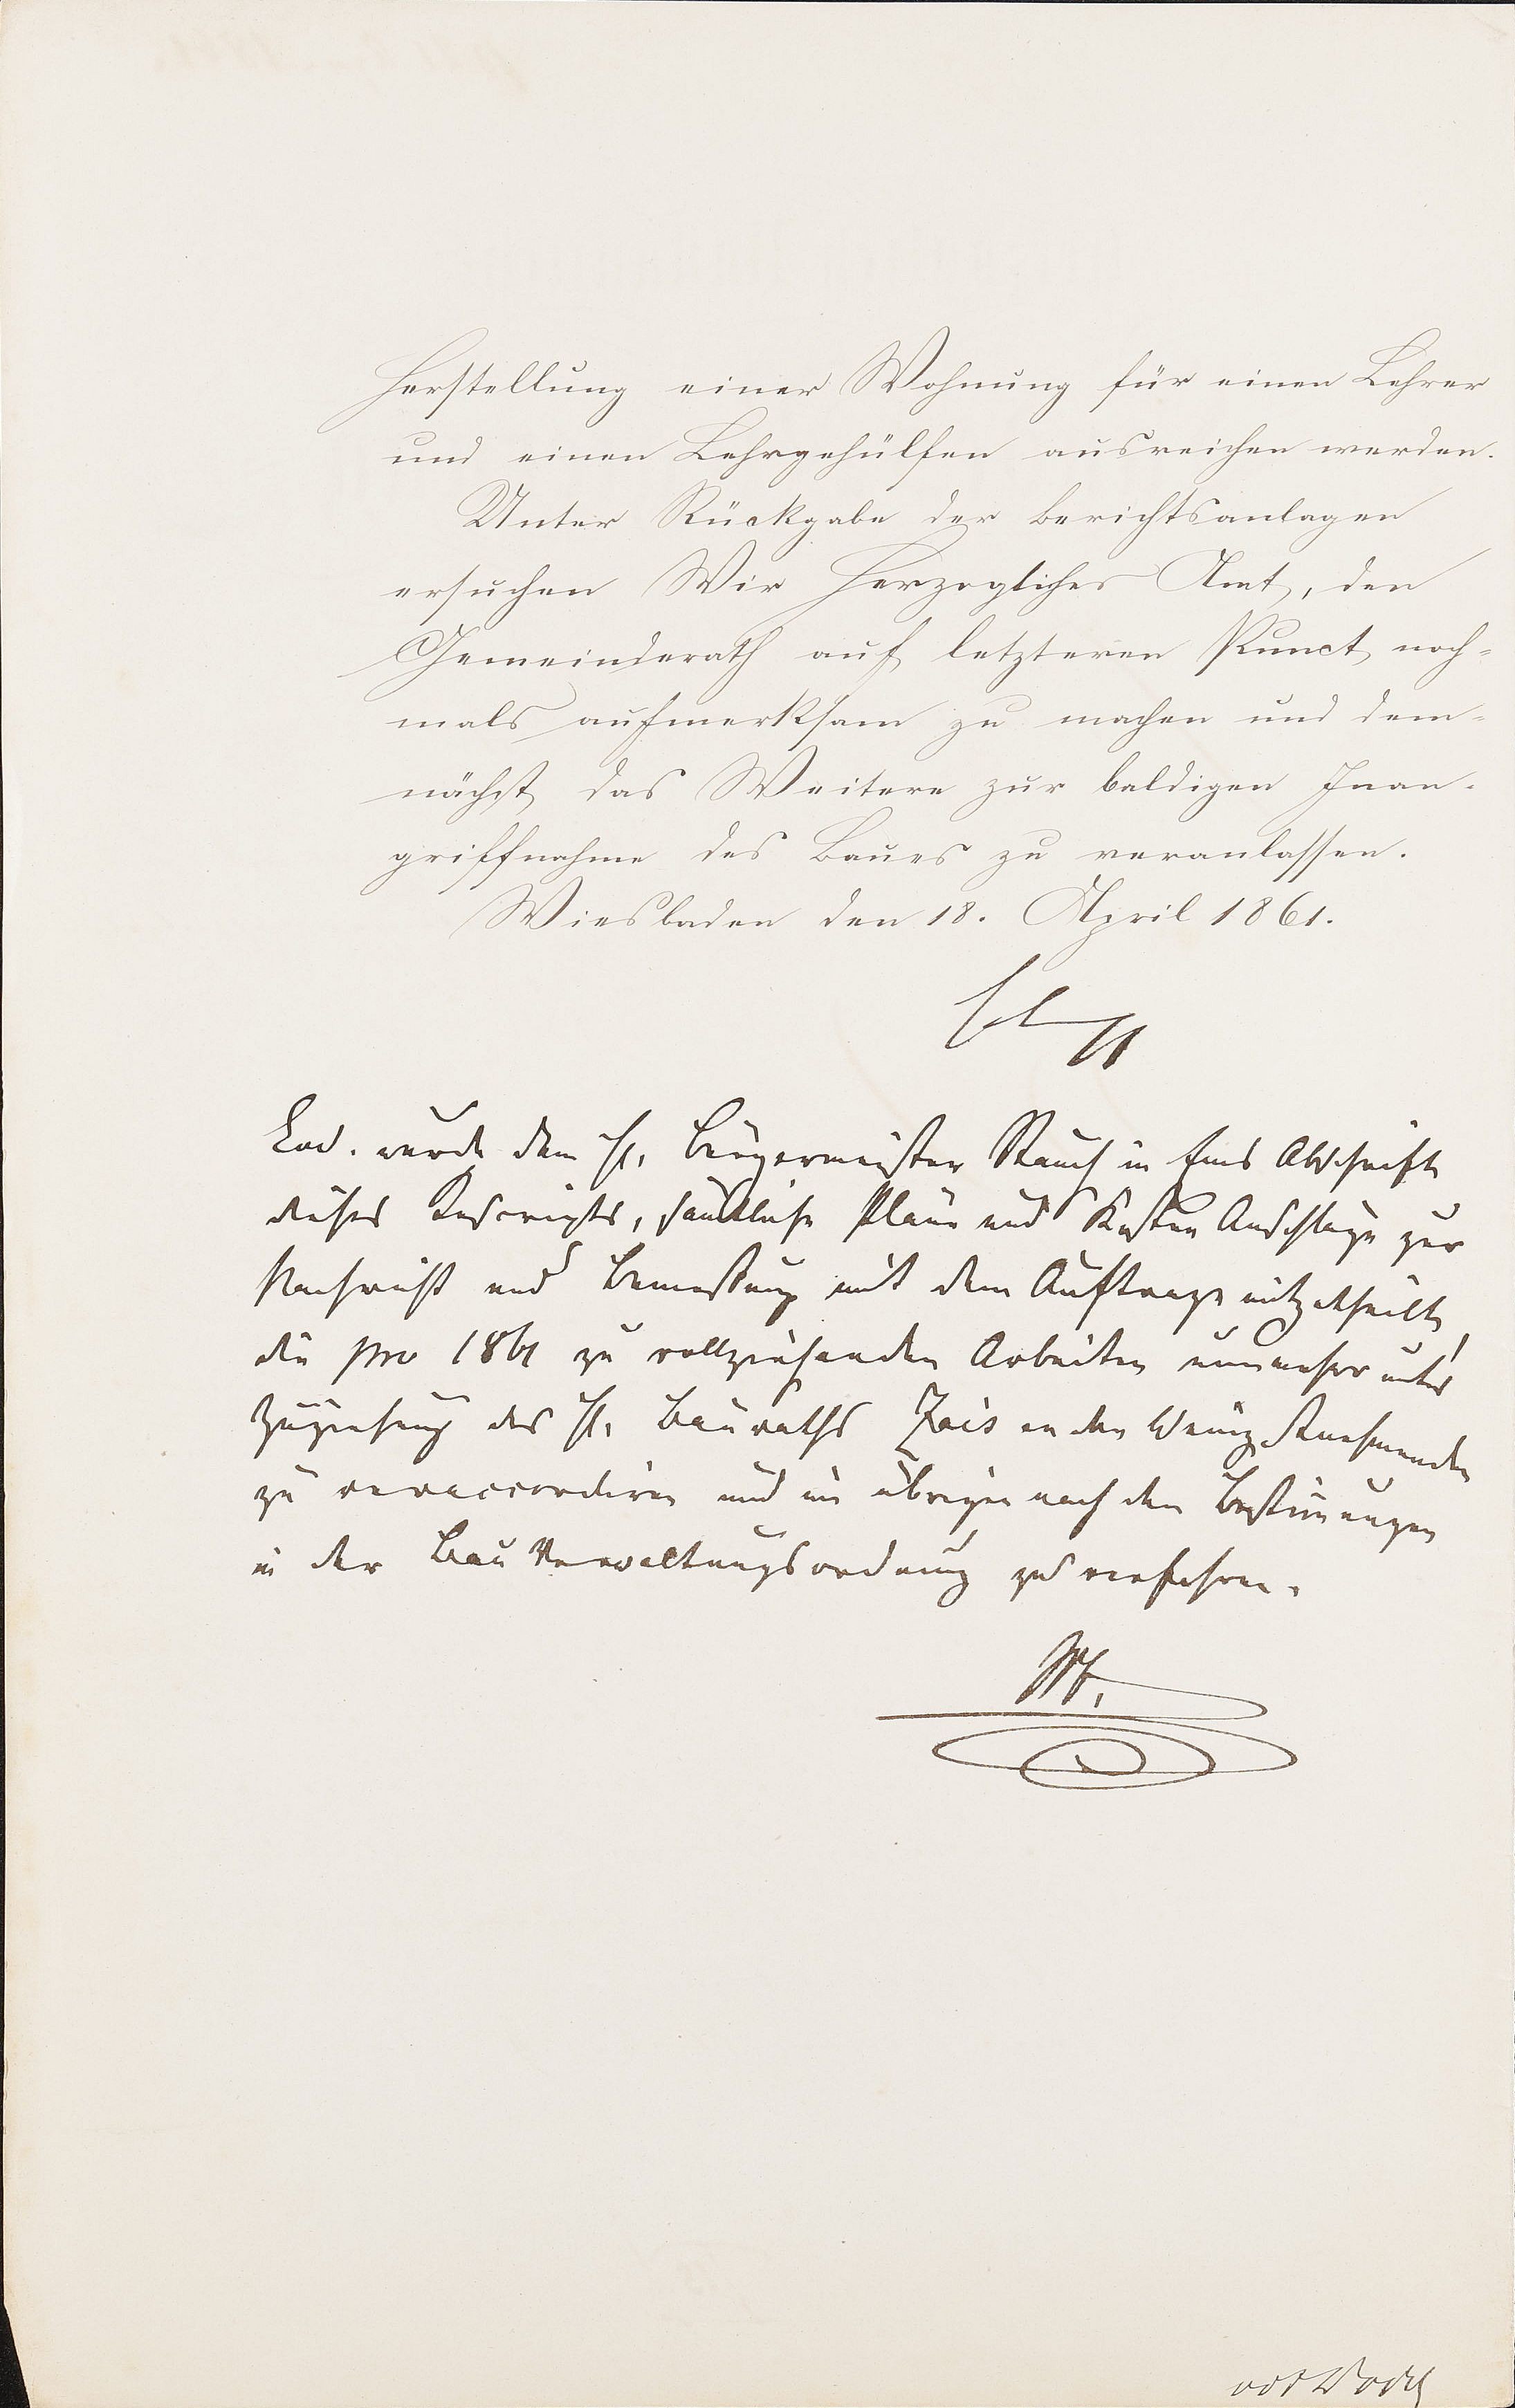 Herstellung einer Wohnung für einen Lehrer
und einen Lehrgehülfen ausreichen werden.
Unter Rückgabe der Berichtsanlagen
ersuchen Wir Herzogliches Amt, den
Gemeinderath auf letzteren Punct noch-
mals aufmerksam zu machen und dem-
nächst das Weitere zur baldigen Inan-
griffnahme des Baues zu veranlassen.
Wiesbaden den 18. April 1861.
Eod. wurde dem H. Bürgermeister Rauch in Ems Abschrift
dieses Rescripts, sämtliche Pläne und Kosten Anschläge zur
Nachricht und Bemessung mit dem Auftrage mitgetheilt,
die pro 1861 zu vollziehenden Arbeiten nunmehr unter
Zuziehung des H. Bauraths Zais an den Wenigstnehmenden
zu veraccordiren und im übrigen nach den Bestimungen
in der Bau Verwaltungsordnung zu verfahren.